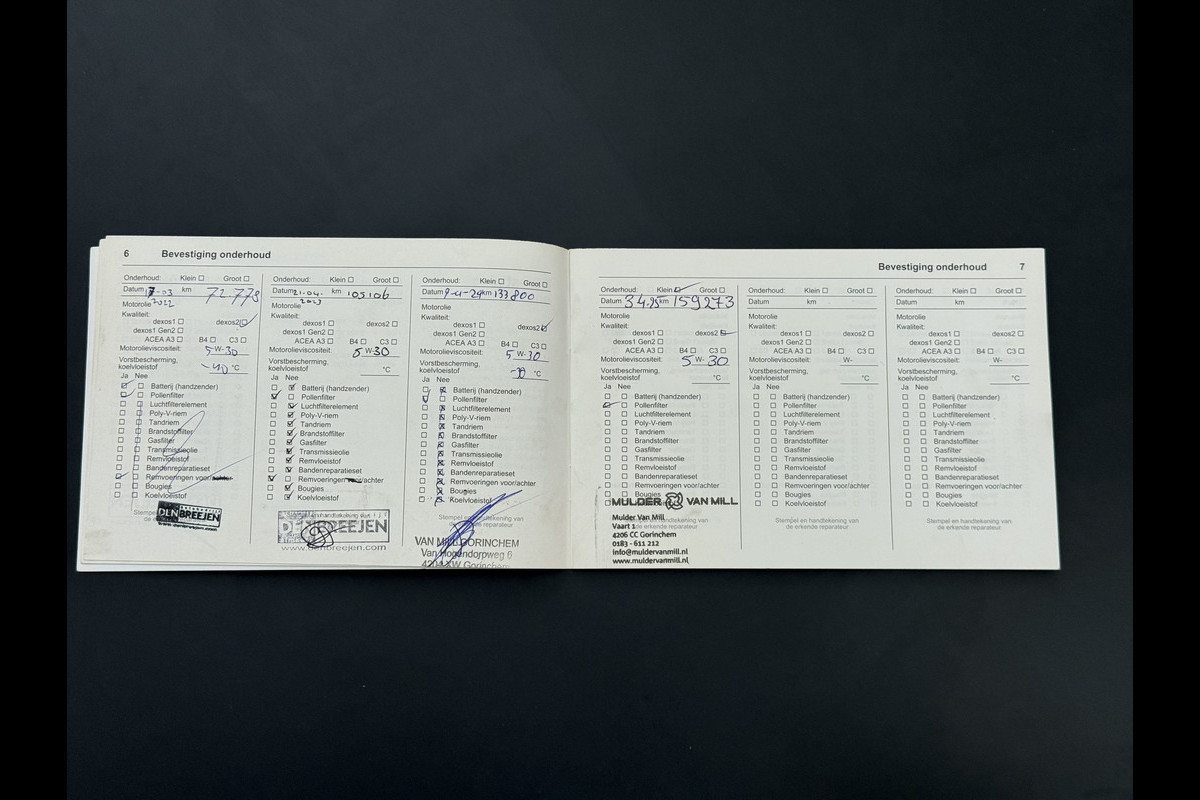 6 Bevestiging onderhoud
Onderhoud: Klein Groot
Datum 17-03 km 72.778
2022
Motorolie
Kwaliteit:
dexos1 dexos2
dexos1 Gen2
ACEA A3 B4 C3
Motorolieviscositeit: 5 W-30
Vorstbescherming,
koelvloeistof -40 °C
Ja Nee
Batterij (handzender)
Pollenfilter
Luchtfilterelement
Poly-V-riem
Tandriem
Brandstoffilter
Gasfilter
Transmissieolie
Remvloeistof
Bandenreparatieset
Remvoeringen voor/achter
Bougies
Koelvloeistof
DEN BREEJEN
Onderhoud: Klein Groot
Datum 21-04- km 105106
2023
Motorolie
Kwaliteit:
dexos1 dexos2
dexos1 Gen2
ACEA A3 B4 C3
Motorolieviscositeit: 5 W-30
Vorstbescherming,
koelvloeistof °C
Ja Nee
Batterij (handzender)
Pollenfilter
Luchtfilterelement
Poly-V-riem
Tandriem
Brandstoffilter
Gasfilter
Transmissieolie
Remvloeistof
Bandenreparatieset
Remvoeringen voor/achter
Bougies
Koelvloeistof
DEN BREEJEN
www.denbreejen.com
Onderhoud: Klein Groot
Datum km 133800
Motorolie
Kwaliteit:
dexos1 dexos2
dexos1 Gen2
ACEA A3 B4 C3
Motorolieviscositeit: 5 W-30
Vorstbescherming,
koelvloeistof °C
Ja Nee
Batterij (handzender)
Pollenfilter
Luchtfilterelement
Poly-V-riem
Tandriem
Brandstoffilter
Gasfilter
Transmissieolie
Remvloeistof
Bandenreparatieset
Remvoeringen voor/achter
Bougies
Koelvloeistof
Stempel en handtekening van
de erkende reparateur
VAN MILL GORINCHEM
Van Hogendorpweg 6
4204 XW Gorinchem
Bevestiging onderhoud 7
Onderhoud: Klein Groot
Datum 3 4.25 km 159273
Motorolie
Kwaliteit:
dexos1 dexos2
dexos1 Gen2
ACEA A3 B4 C3
Motorolieviscositeit: 5 W-30
Vorstbescherming,
koelvloeistof °C
Ja Nee
Batterij (handzender)
Pollenfilter
Luchtfilterelement
Poly-V-riem
Tandriem
Brandstoffilter
Gasfilter
Transmissieolie
Remvloeistof
Bandenreparatieset
Remvoeringen voor/achter
Bougies
MULDER VAN MILL
Mulder Van Mill
Vaart 1
4206 CC Gorinchem
0183 - 611 212
info@muldervanmill.nl
www.muldervanmill.nl
Onderhoud: Klein Groot
Datum km
Motorolie
Kwaliteit:
dexos1 dexos2
dexos1 Gen2
ACEA A3 B4 C3
Motorolieviscositeit: W-
Vorstbescherming,
koelvloeistof °C
Ja Nee
Batterij (handzender)
Pollenfilter
Luchtfilterelement
Poly-V-riem
Tandriem
Brandstoffilter
Gasfilter
Transmissieolie
Remvloeistof
Bandenreparatieset
Remvoeringen voor/achter
Bougies
Koelvloeistof
Stempel en handtekening van
de erkende reparateur
Onderhoud: Klein Groot
Datum km
Motorolie
Kwaliteit:
dexos1 dexos2
dexos1 Gen2
ACEA A3 B4 C3
Motorolieviscositeit: W-
Vorstbescherming,
koelvloeistof °C
Ja Nee
Batterij (handzender)
Pollenfilter
Luchtfilterelement
Poly-V-riem
Tandriem
Brandstoffilter
Gasfilter
Transmissieolie
Remvloeistof
Bandenreparatieset
Remvoeringen voor/achter
Bougies
Koelvloeistof
Stempel en handtekening van
de erkende reparateur